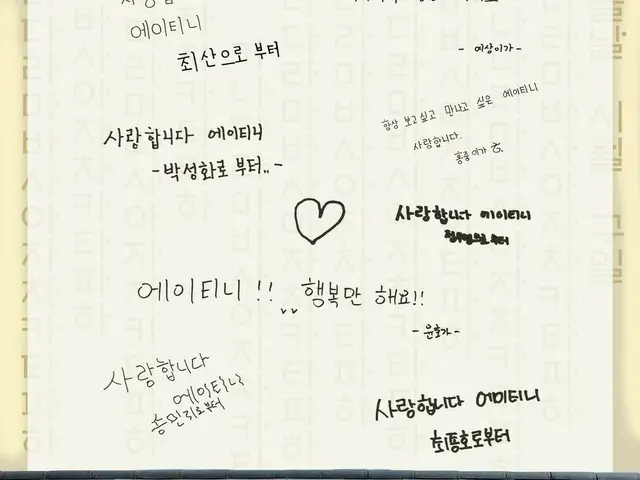 에이티니
최산으로 부터
- 여상이가 -
사랑합니다 에이티니
- 박성화로 부터.. -
항상 보고싶고 만나고 싶은 에이티니
사랑합니다.
홍중이가
사랑합니다 에이티니
정우영으로 부터
에이티니 !! 행복만 해요!!
- 윤호가 -
사랑합니다
에이티니
송민기로부터
사랑합니다 에이티니
최종호로부터